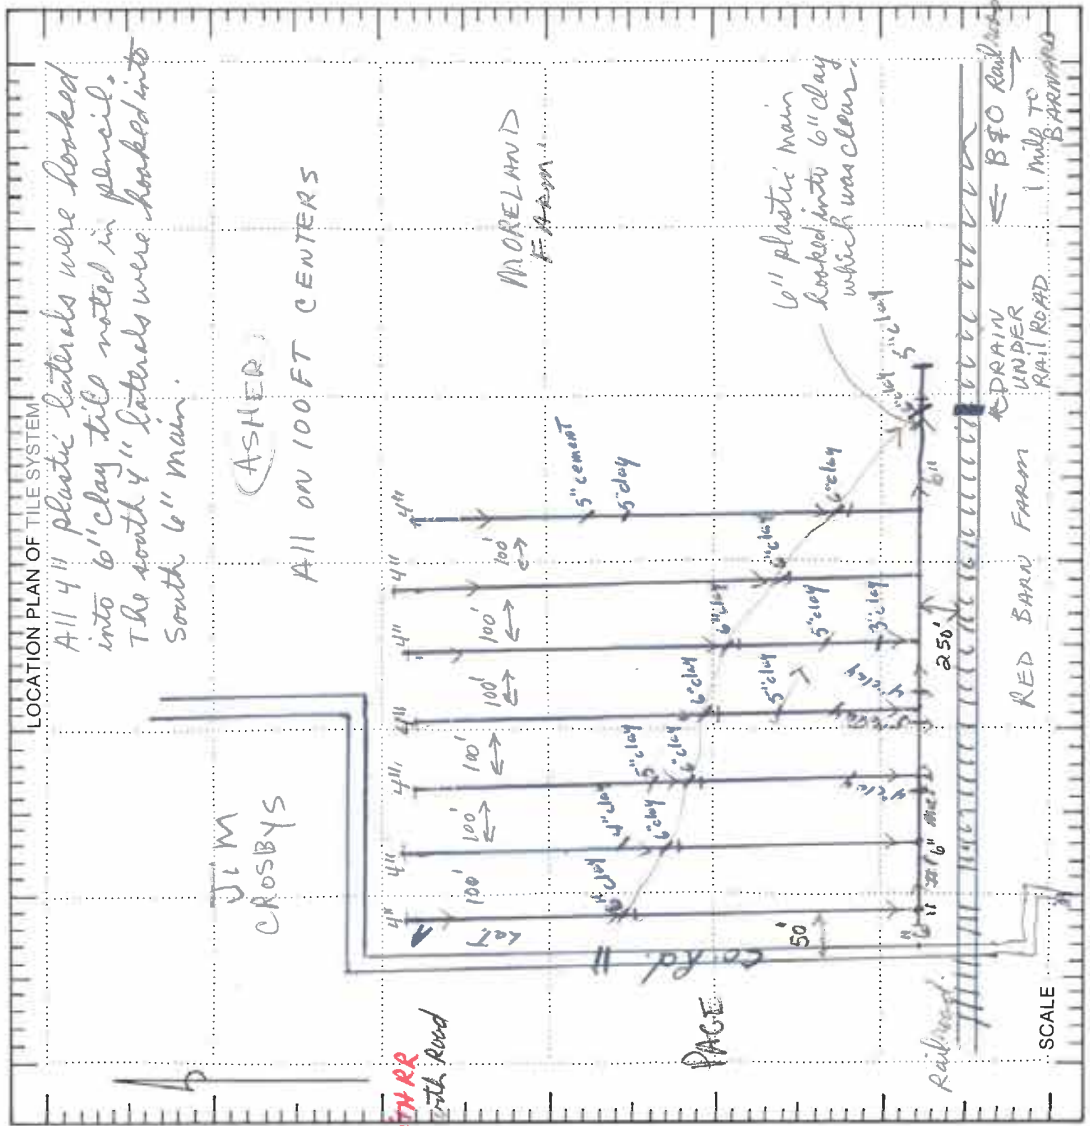 LOCATION PLAN OF TILE SYSTEM
All 4" plastic laterals were hooked
into 6" clay tile noted in pencil.
The south 4" laterals were hooked into
South 6" main.
ASHER
All ON 100 FT CENTERS
JIM
CROSBYS
MORELAND
FARM
6" plastic main
hooked into 6" clay
which was clear.
4"
4"
4"
4"
4"
4"
4"
100'
100'
100'
100'
100'
100'
LAT
5" cement
5" clay
6" clay
6" clay
6" clay
5" clay
3" clay
6" clay
5" clay
4" clay
5" clay
6" clay
4" clay
4" clay
6" clay
6" clay
6" clay
5" clay
6"
6"
6"
50'
250'
Co. Rd.
PAGE
RR
Road
Railroad
RED BARN FARM
DRAIN
UNDER
RAILROAD
← B&O Railroad →
1 mile TO
BARNARD
SCALE